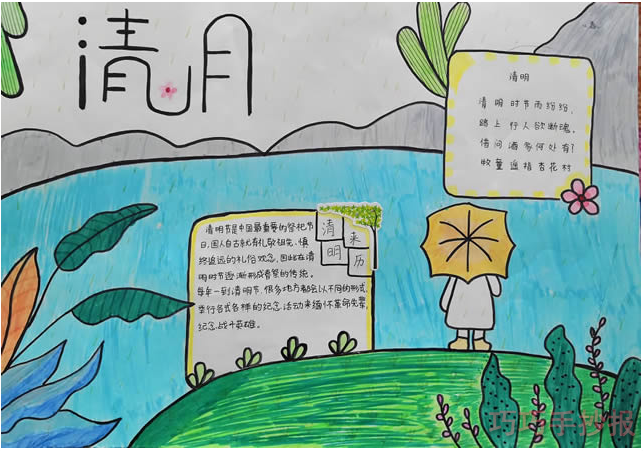 清明
清明
清明时节雨纷纷,
路上行人欲断魂。
借问酒家何处有?
牧童遥指杏花村
清明来历
清明节是中国最重要的祭祀节
日,国人自古就有礼敬祖先、慎
终追远的礼俗观念,因此在清
明时节逐渐形成祭的传统。
每年一到清明节,很多地方都会以不同的形式,
举行各式各样的纪念活动来缅怀革命先辈,
纪念战斗英雄。
巧巧手抄报